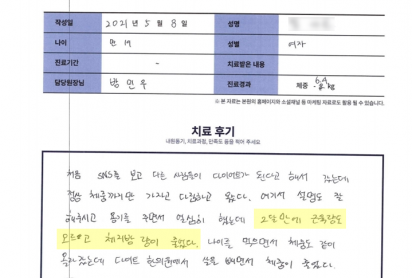 작성일 2021년 5월 8일 성명
나이 만 19 성별 여자
진료기간 - 치료받은 내용
담당원장님 방민우 진료경과 체중 kg
※ 본 자료는 본원의 홈페이지와 소셜채널 등 마케팅 자료로도 활용 될 수 있습니다.
치료 후기
내원동기, 치료과정, 만족도 등을 적어 주세요
처음 SNS를 보고 다른 사람들이 다이어트가 된다고 해서 갔는데
정상 체중까지만 가자고 다짐하고 왔다. 여기서 설명도 잘
해주시고 용기를 주면서 열심히 했는데 2달만에 근육량도
오르고 체지방 량이 줄었다. 나이를 먹으면서 체중도 같이
올라갔는데 다이트 한의원에서 살을 빼면서 체중이 줄었다.